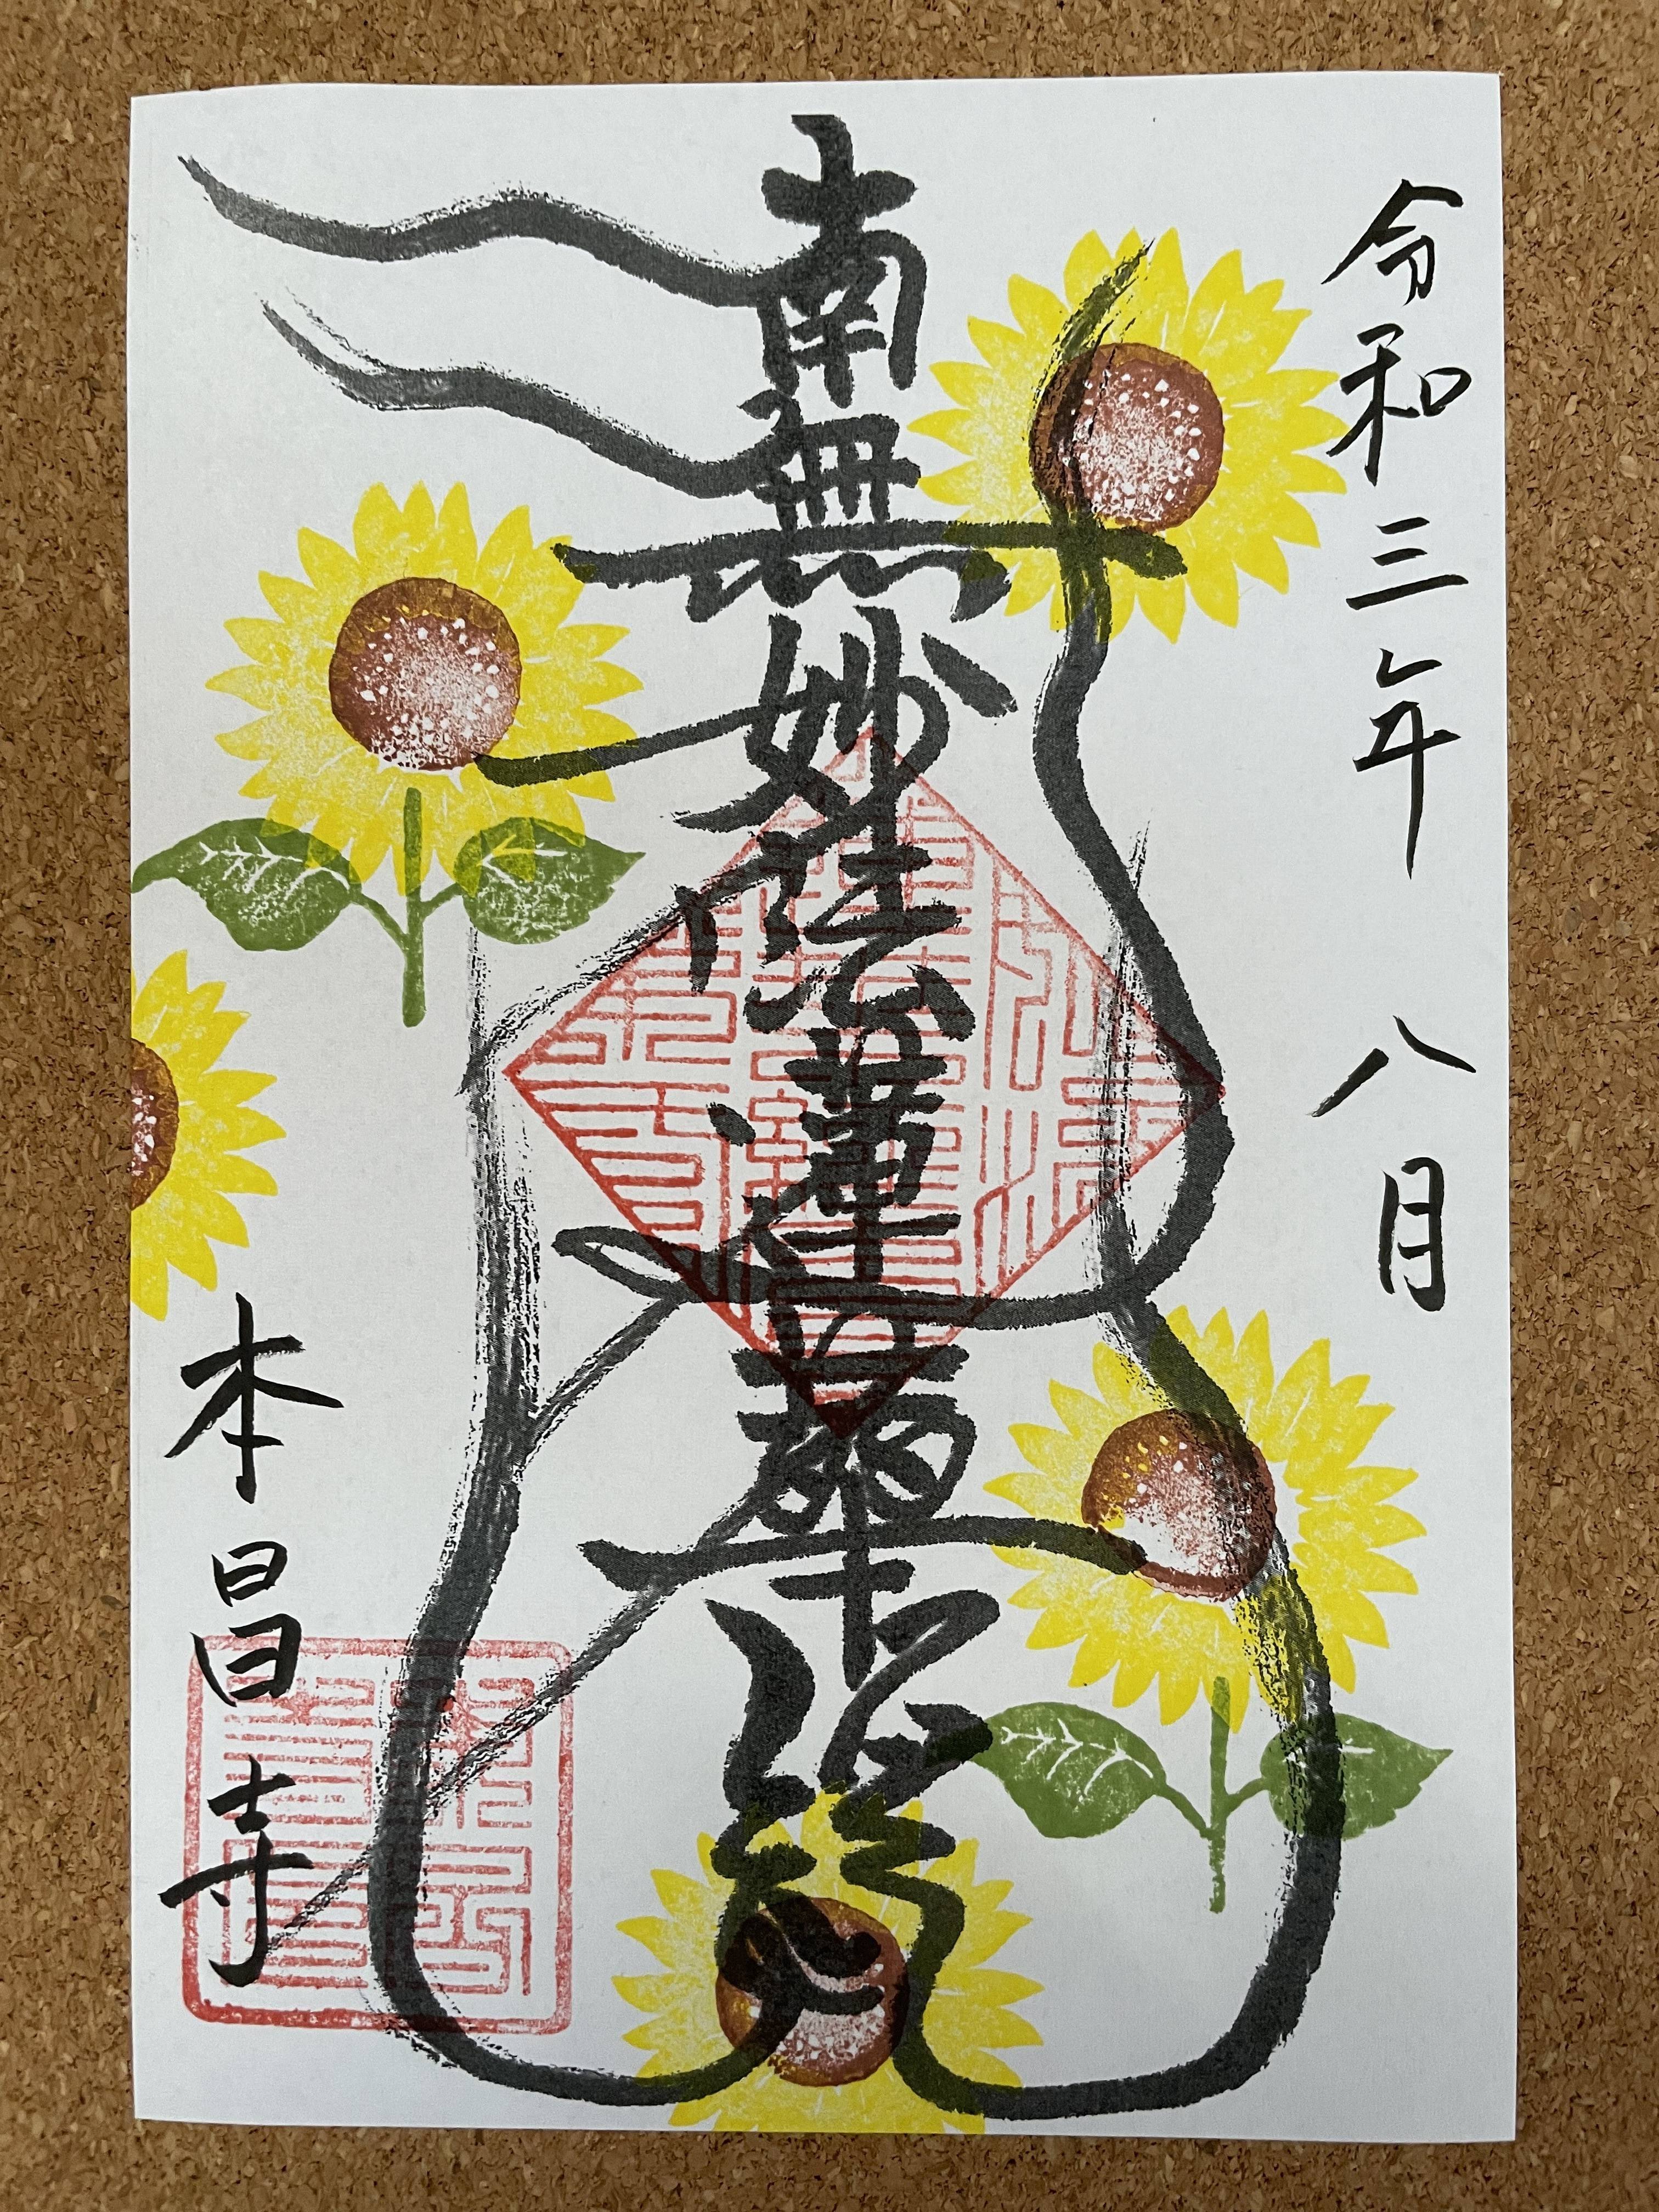 令和三年 八月
南無妙法蓮華経
本昌寺